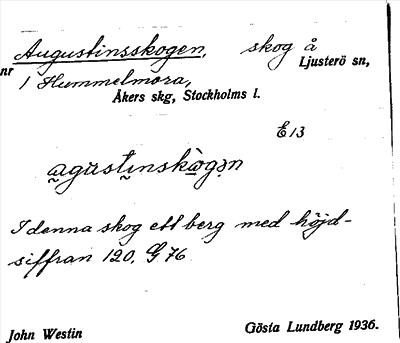 Augustinsskogen, skog å
Ljusterö sn,
nr 1 Hummelmora,
Åkers skg, Stockholms l.
E 13
I denna skog ett berg med höjd-
siffran 120, G 76
John Westin Gösta Lundberg 1936.